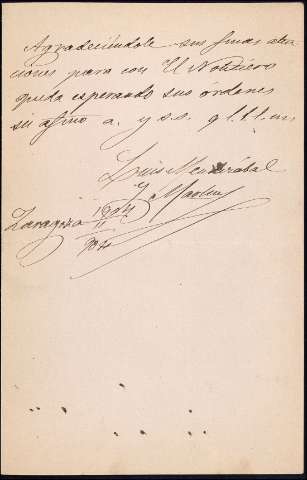 Agradeciéndole sus finas aten
ciones para con El Noticiero
queda esperando sus órdenes
su afmo a. y s.s. q l. t. l. m
Luis Mendizábal
y
Zaragoza